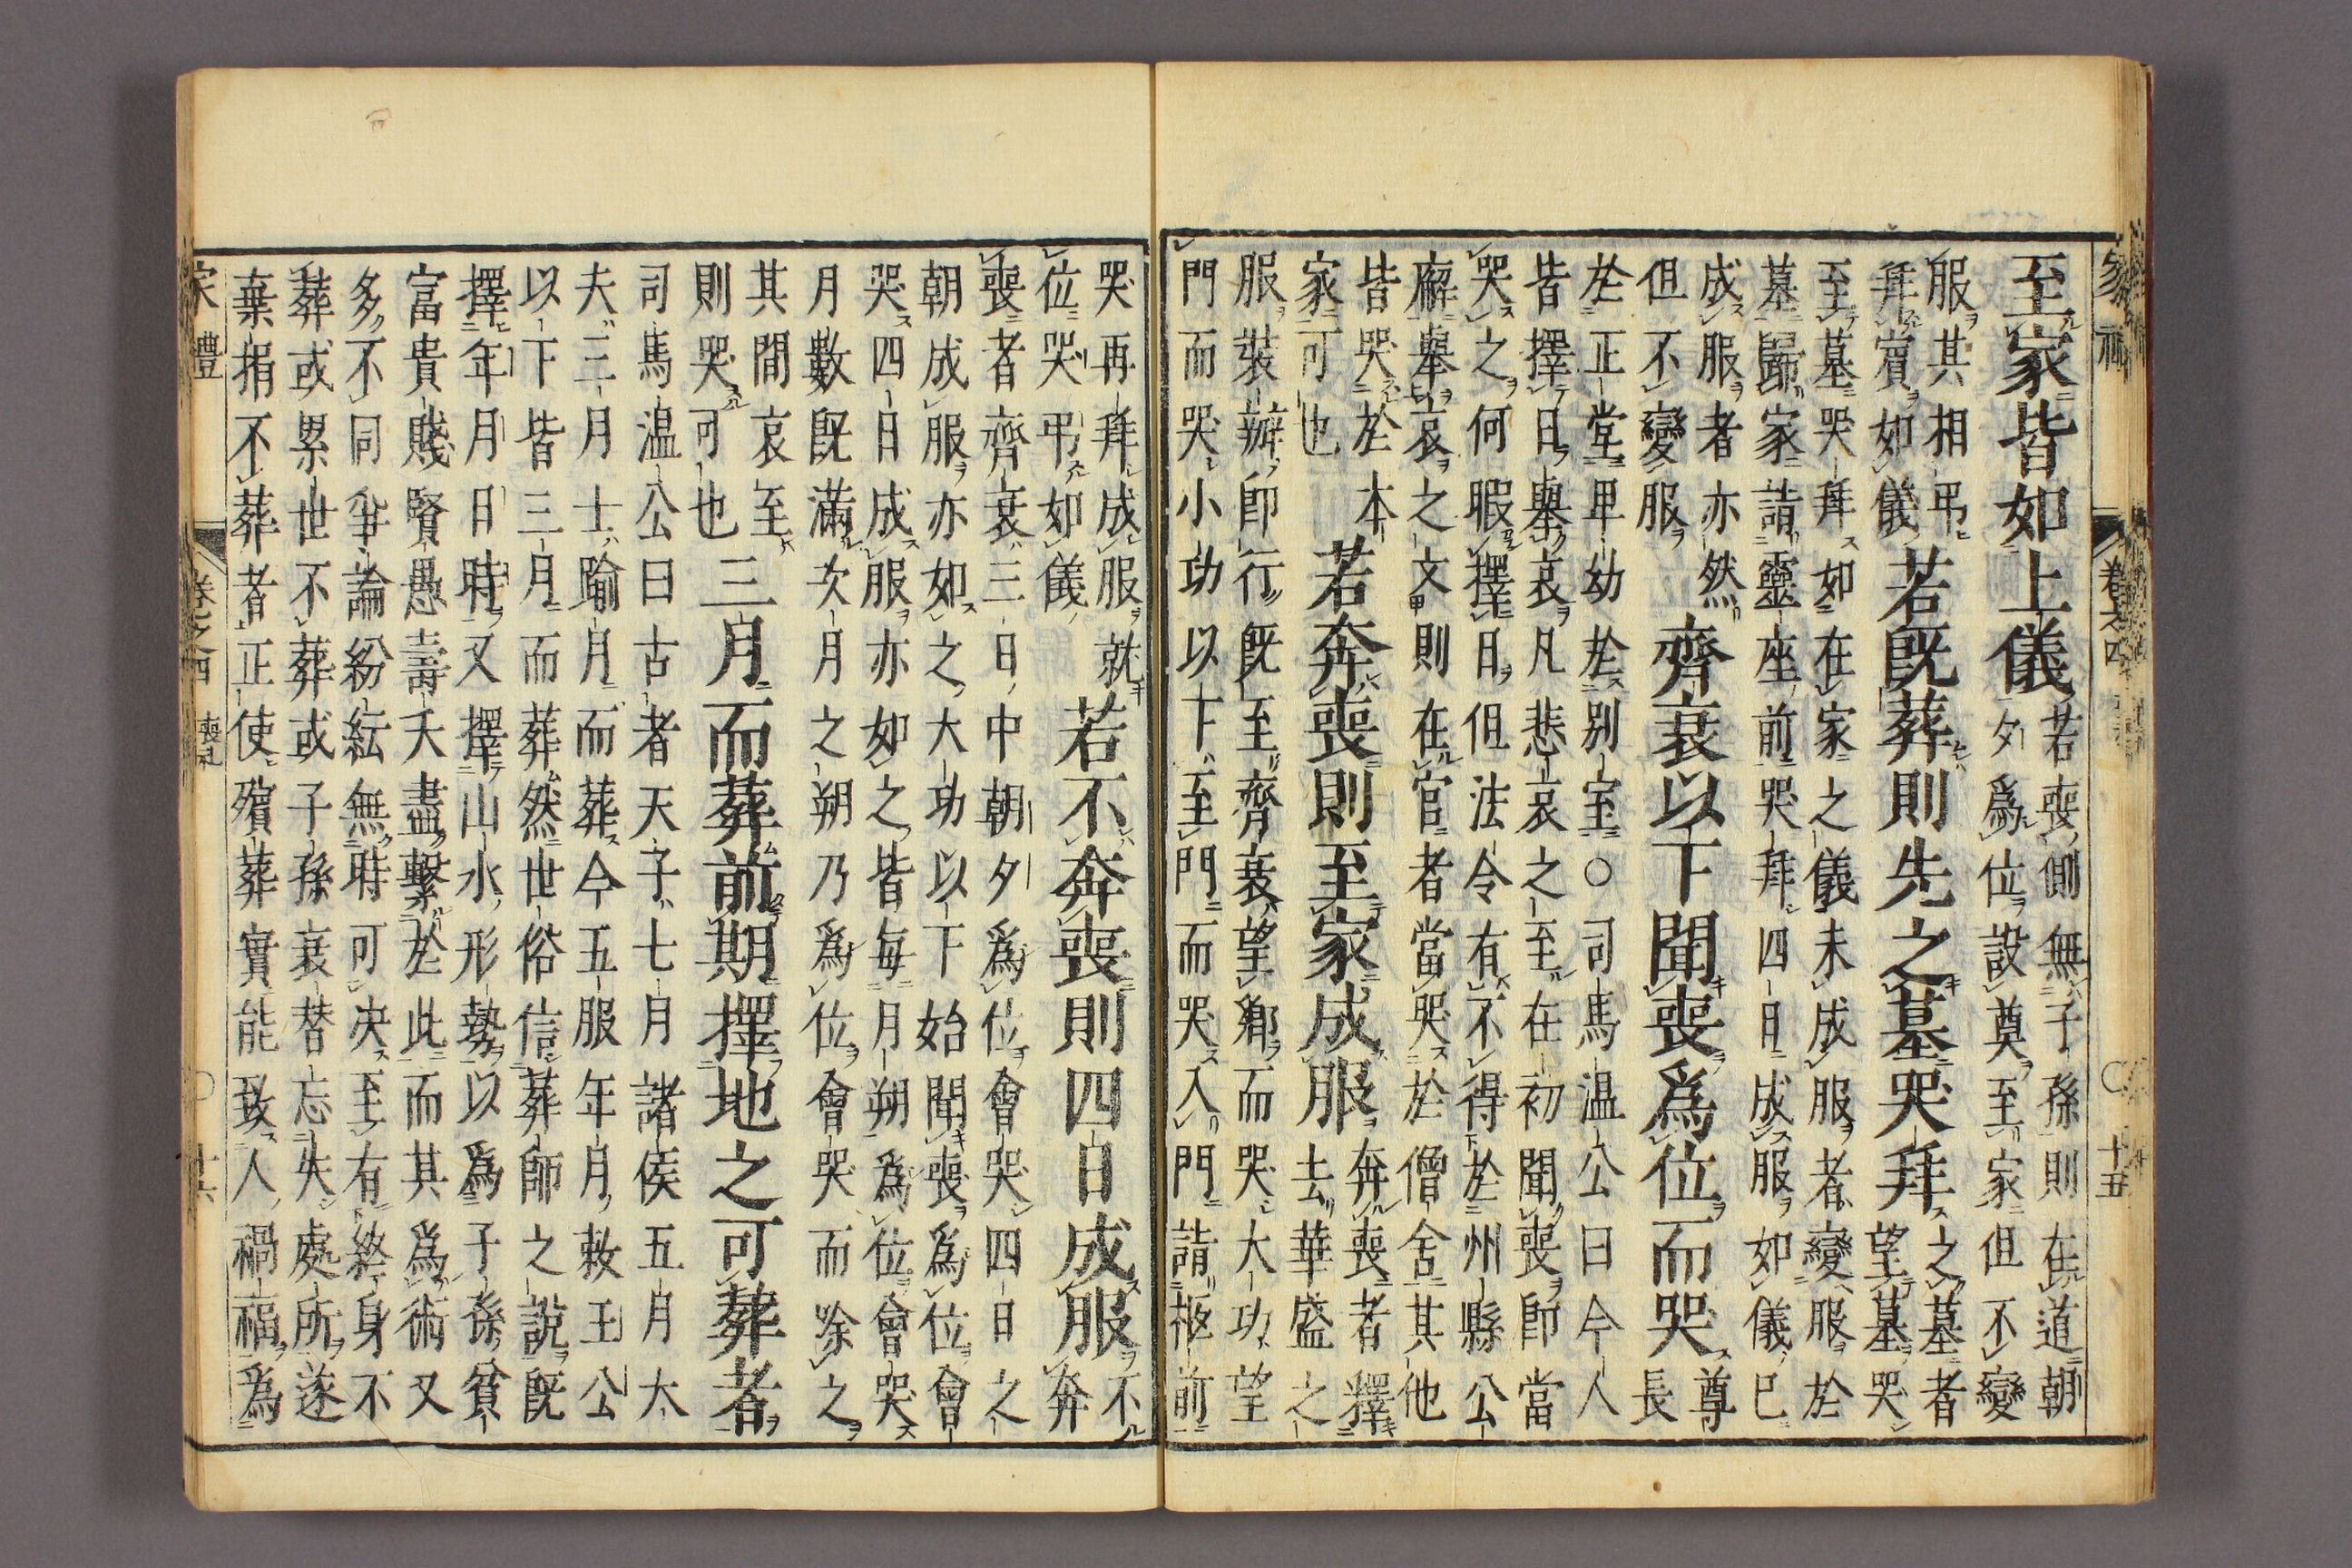 家禮 卷之四 ○ 十五
至家皆如上儀
若喪側無子孫則在道朝
夕爲位設奠至家但不變
服其相弔
拜賓如儀
若既葬則先之墓哭拜
之墓者
望墓哭
至墓哭拜如在家之儀未成服者變服於
墓歸家詣靈座前哭拜四日成服如儀已
成服者亦然
但不變服
齊衰以下聞喪爲位而哭
尊
長
於正堂卑幼於別室○司馬温公曰今人
皆擇日舉哀凡悲哀之至在初聞喪即當
哭之何暇擇日但法令有不得於州縣公
廨舉哀之文則在官者當哭於僧舍其他
皆哭於本
家可也
若奔喪則至家成服
奔喪者釋
去華盛之
服裝辦即行既至齊衰望鄉而哭大功望
門而哭小功以下至門而哭入門詣柩前
哭再拜成服就
位哭弔如儀
若不奔喪則四日成服
不
奔
喪者齊衰三日中朝夕爲位會哭四日之
朝成服亦如之大功以下始聞喪爲位會
哭四日成服亦如之皆每月朔爲位會哭
月數既滿次月之朔乃爲位會哭而除之
其間哀至
則哭可也
三月而葬前期擇地之可葬者
司馬温公曰古者天子七月諸侯五月大
夫三月士踰月而葬今五服年月敕王公
以下皆三月而葬然世俗信葬師之說既
擇年月日時又擇山水形勢以爲子孫貧
富貴賤賢愚壽夭盡繫於此而其爲術又
多不同爭論紛紜無時可決至有終身不
葬或累世不葬或子孫衰替忘失處所遂
棄捐不葬者正使殯葬實能致人禍福爲
家禮 卷之四 ○ 十六